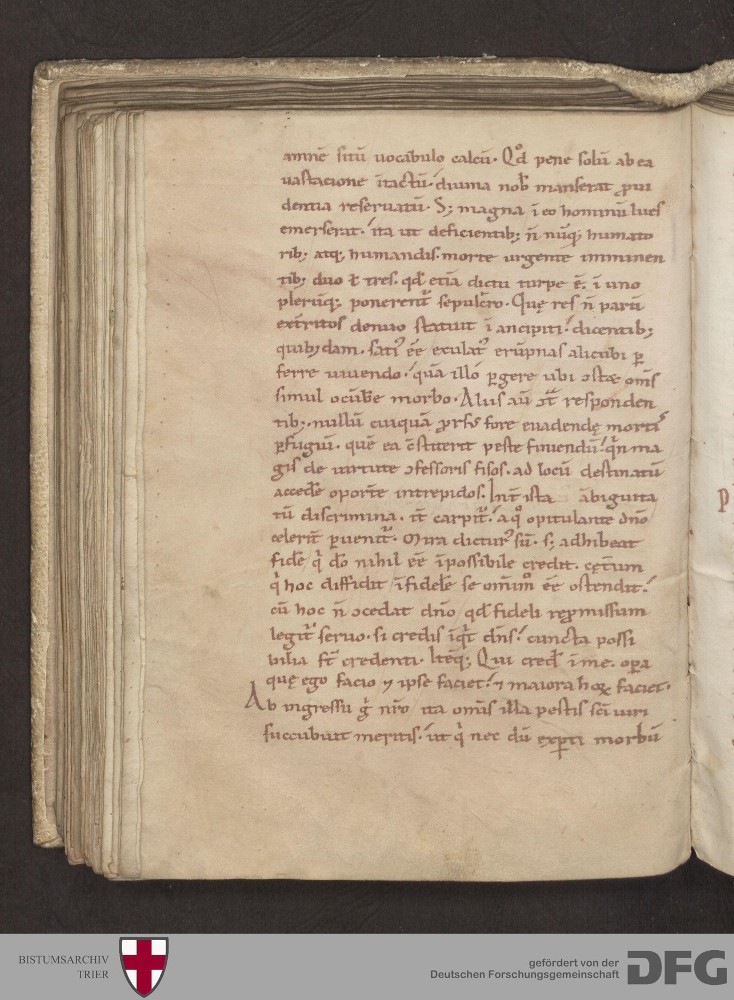 amnē sitū uocabulo calcū. Qd pene solū ab ea
uastacione ītactū. diuina nob manserat ꝓui
dentia reseruatū. S; magna ī eo hominū lues
emerserat. ita ut deficientib; n̄ nūq; humato
rib; atq; humandis. morte urgente imminen
tib; duo ł tres. qd etiā dictu turpe ē. ī uno
plerūq; ponerent sepulcro. Quę res n̄ parū
exītritos denuo statuit ī ancipiti. dicentib;
quib;dam. satiꝰ eē exulatꝰ erūpnas alicubi ꝑ
ferre uiuendo. quā illo ꝑgere ubi omīs
simul ocūbere morbo. Aliis aū responden
tib;. nullū cuiquā ꝓrsꝰ fore euadendę mortis
ꝑfugiū. quē ea cstiterit peste finiendū. qn̄ ma
gis de uirtute ↄfessoris fisos. ad locū destinatū
acceđe oporte intrepidos. Inī ista ābiguita
tū discrimina. iť carpit. a quo opitulante dn̄o
celerit ꝑuenit. Mira dicturꝰ sū. s; adhibeat
fidē q̇ do nihil eē īpossibile credit. cęterum
q̇ hoc diffidit īfidelē se omnimo eē ostendit.
cū hoc n̄ ↄcedat dn̄o qd fideli reꝓmissum
legit seruo. si credis iqt dn̄s. cuncta possi
bilia st credenti. Iteq; Qui cred ī me. oꝑa
quę ego facio ⁊ ipse faciet. ⁊ maiora hoꝝ faciet.
Ab ingressu g̊ nr̄o ita omīs illa pestis sci uiri
succubuit meritis. ut q̇ nec dū exꝑti morbū
P
BISTUMSARCHIV
TRIER
gefördert von der
Deutschen Forschungsgemeinschaft
DFG